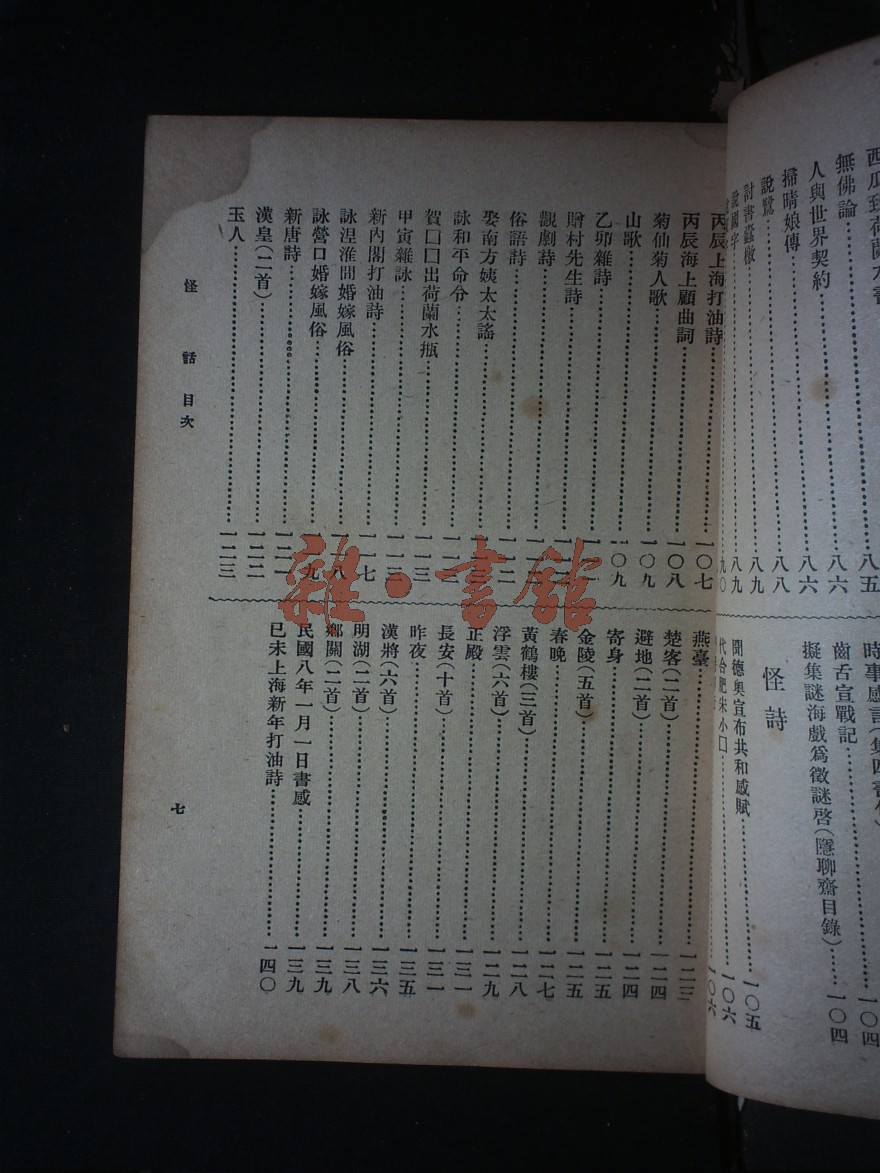 無佛論……八六
人與世界契約……八六
掃晴娘傳……八八
說鷺……八九
討書蠹檄……八九
說國字……九〇
擬集謎海戲爲徵謎啓(隱聊齋目錄)……一〇四
齒舌宣戰記……一〇四
怪詩
聞德奧宣布共和感賦……一〇五
代合肥宋小口……一〇六
丙辰上海打油詩……一〇七
丙辰海上顧曲詞……一〇八
菊仙菊人歌……一〇九
山歌……一〇九
乙卯雜詩
贈村先生詩
觀劇詩
俗語詩
娶南方姨太太謠
詠和平命令
賀囗囗出荷蘭水瓶……一一三
甲寅雜詠……一一三
新內閣打油詩……一一七
詠涅淮間婚嫁風俗
詠營口婚嫁風俗
新唐詩……一二一
漢皇(二首)……一二二
玉人……一二三
燕臺……一二三
楚客(二首)……一二四
避地(二首)……一二四
寄身……一二五
金陵(五首)……一二五
春晚……一二七
黃鶴樓(三首)……一二八
浮雲(六首)……一二九
正殿……一三一
長安(十首)……一三一
昨夜……一三五
漢將(六首)……一三六
明湖(二首)……一三八
鄉關(二首)……一三九
民國八年一月一日書感……一三九
已未上海新年打油詩……一四〇
怪話目次
七
雜·書館